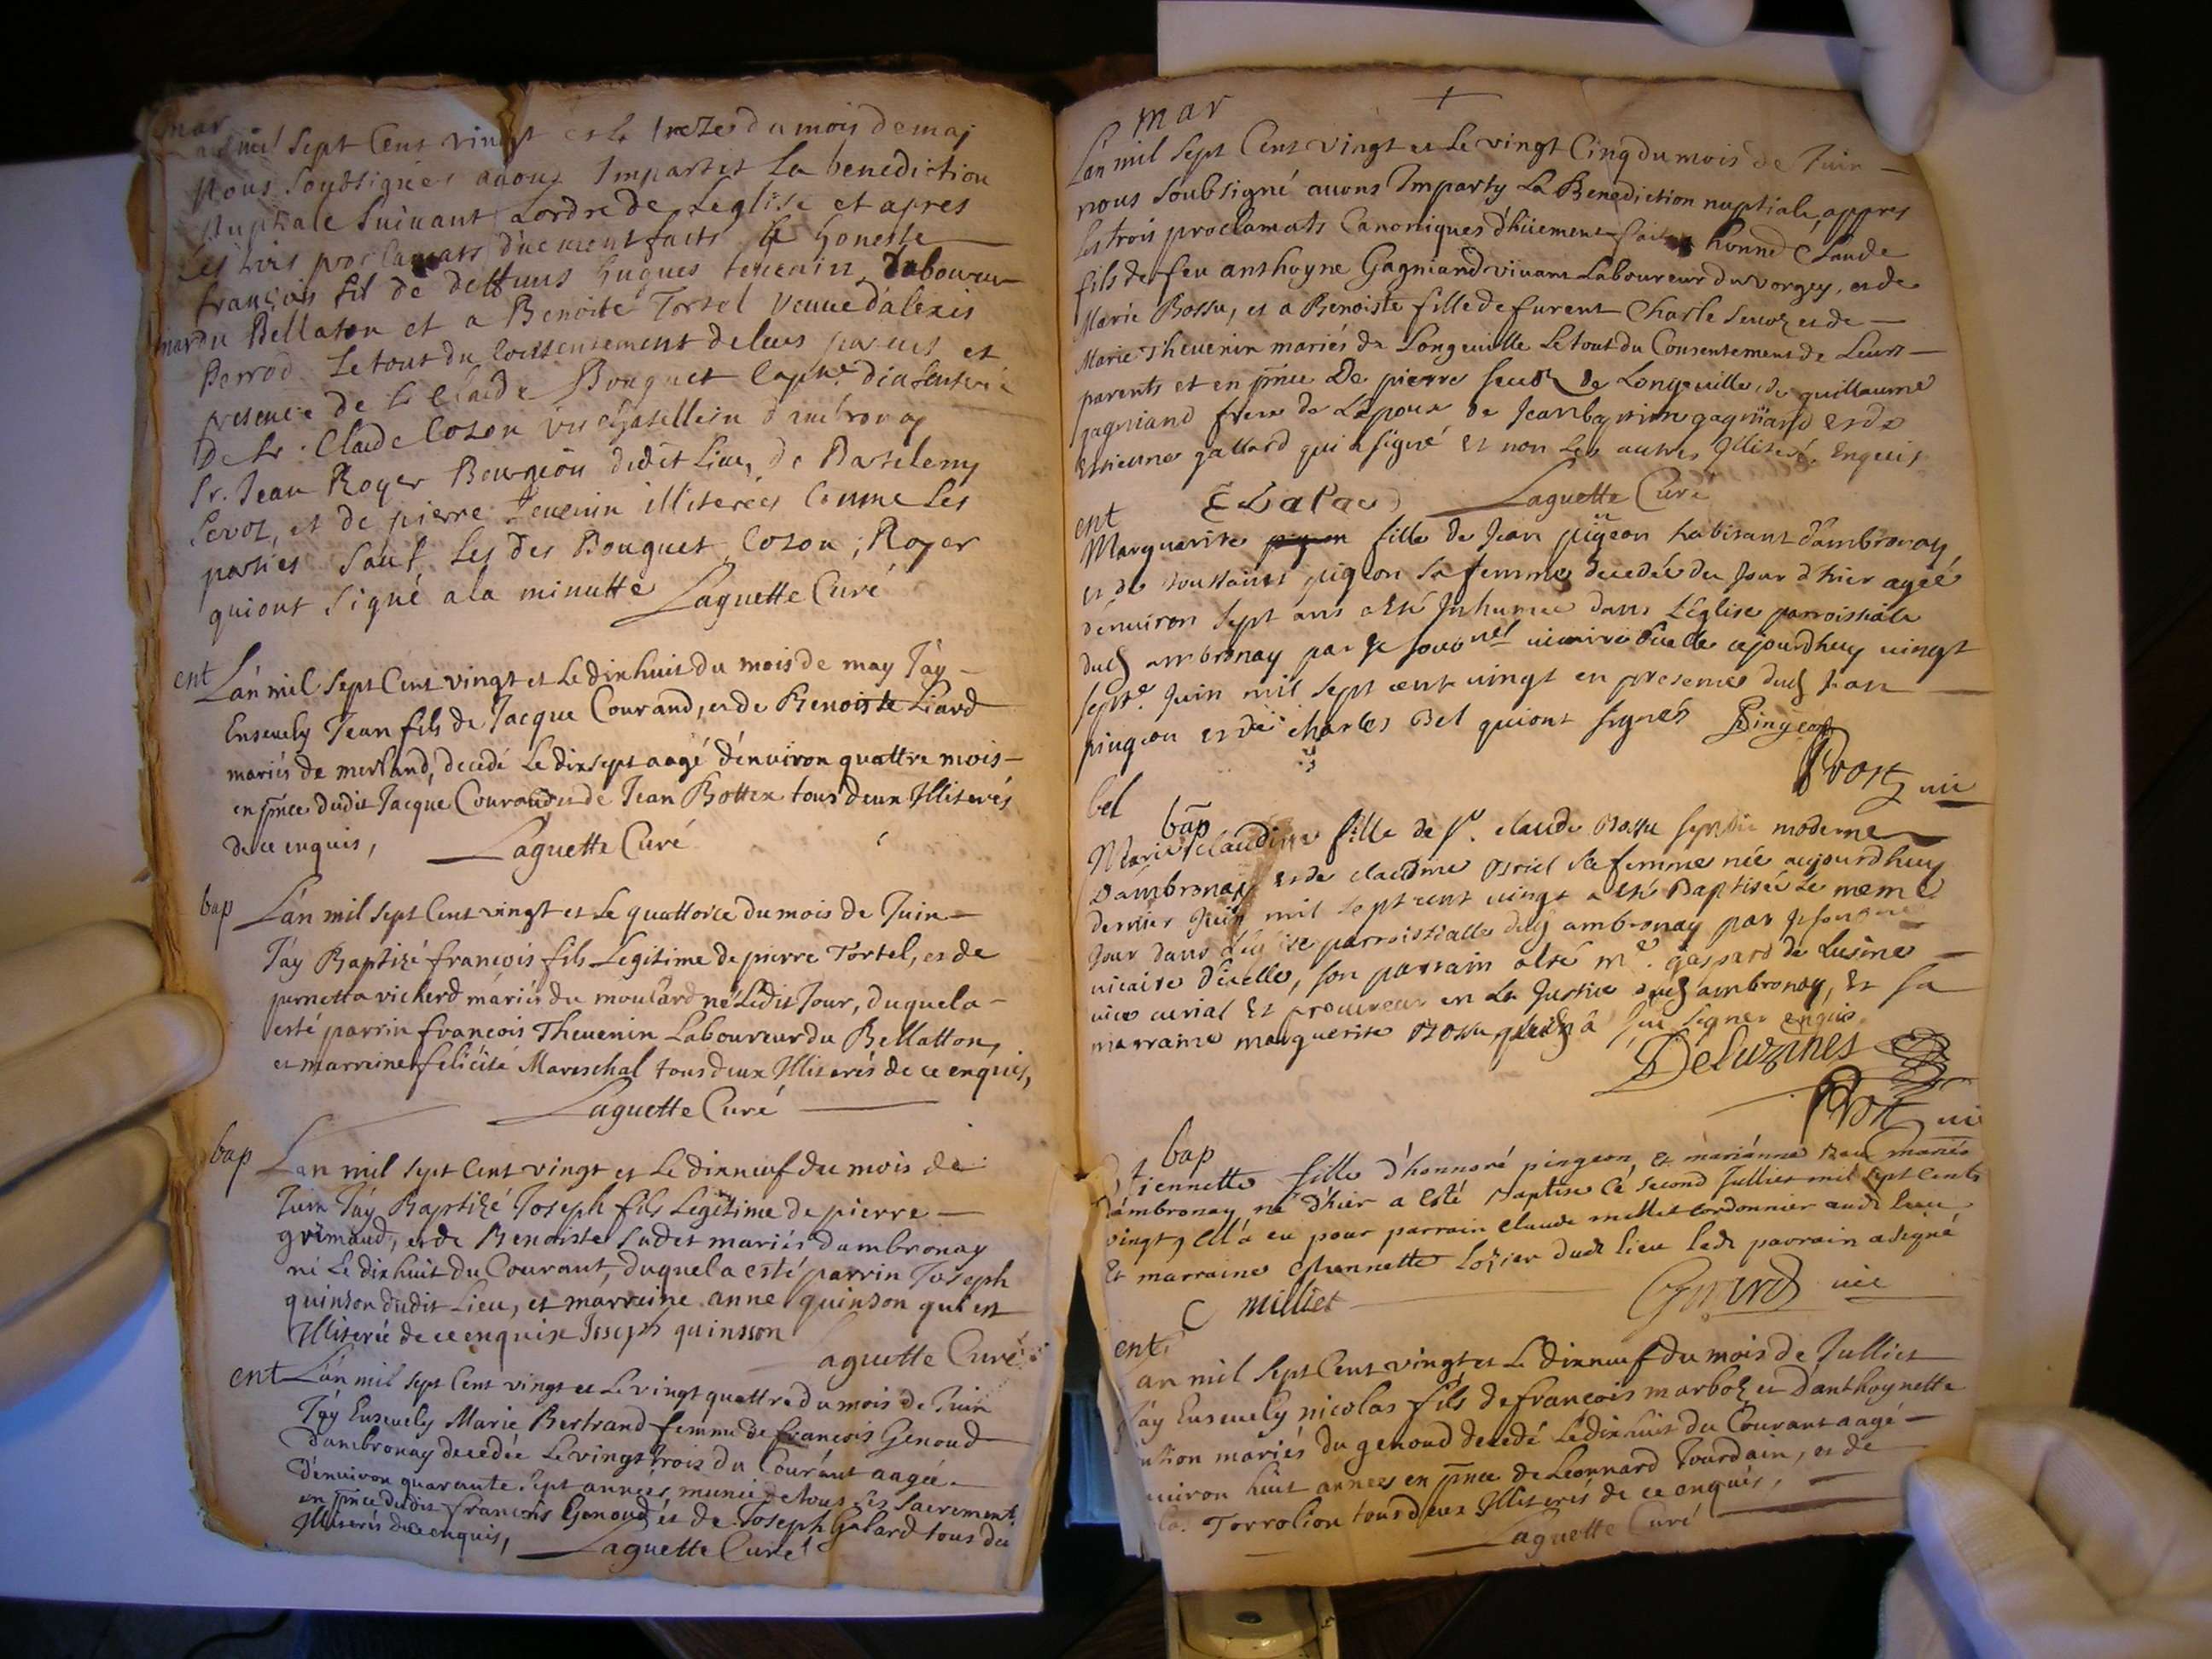 mar
mil sept Cent vingt et le treze du mois de maj
Nous soubsignes avons Impartit La benediction
Nuptiale suivant Lordre de Leglise et apres
Les trois proclamats duement faits a honeste
françois fil de deffuns hugues tevenin Laboureur
mar du Bellaton et a Benoite Tortel veuve dalexis
Perrod Le tout du Consentement de leurs parens et
presence de Sr Claude Bouquet Capne dinfanterie
De Sr. Claude Cozon vis Chastellein dambronay
Sr. Jean Roger Bourgeois dudit Lieu, de Bartelemy
Sevoz, et de pierre Tevenin illiterées Comme Les
parties Sauf Les dts Bouquet, Cozon, Roger
qui ont signé a la minutte Laguette Curé
ent Lán mil Sept Cent vingt et Le dixhuit du mois de may J'áy
Ensevely Jean fils de Jacque Courand, et de Benoiste Liard
mariés de merland, decedé Le dixsept aagé d'environ quattre mois
en pnce dudit Jacque Courand et de Jean Bottex tous deux Illiterés
de ce enquis, Laguette Curé
bap Lán mil Sept Cent vingt et Le quattorce du mois de Juin
J'áy Baptizé françois fils Legitime de pierre Tortel, et de
pernetta vicherd mariés du moulard né Ledit Jour, duquel a
esté parrin françois Thevenin Laboureur du Bellatton,
et marreine felicité Mareschal tous deux Illiterés de ce enquis,
Laguette Curé
bap Lan mil Sept Cent vingt et Le dixneuf du mois de
Juin J'áy Baptizé Joseph fils Legitime de pierre
grimaud, et de Benoiste Sudet mariés dambronay
né Le dixhuit du Courant, duquel a esté parrin Joseph
quinson dudit Lieu, et marreine anne quinson qui est
Illiterée de ce enquise Joseph quinsson
Laguette Curé
ent Lán mil Sept Cent vingt et Le vingt quattre du mois de Juin
J'áy Ensevely Marie Bertrand femme de françois Genoud
d'ambronay decedée Le vingt trois du Couránt aagée
d'environ quarante sept années, munie de tous Les Sacrements
en pnce dudit françois Genoud et de Joseph Galard tous du
Illiterés de ce enquis, Laguette Curé
mar
Lán mil Sept Cent vingt et Le vingt Cinq du mois de Juin
nous soubsigné avons Imparty La Benediction nuptiale, appres
les trois proclamats Canoniques dhüement faits a honne Claude
fils de feu anthoyne Gagniand vivant Laboureur du vorgey, et de
Marie Bossu, et a Benoiste fille de furent Charle Sevoz et de
Marie Thevenin mariés de Longeville Le tout du Consentement de Leurs
parents et en pnce De pierre Sevoz de Longeville, de guillaume
gagniand frere de Lépoux de Jean baptiste gagniand et de
Estienne gallard qui a signé et non Les autres Illiteré. Enquis
E Galard Laguette Curé
ent
Marguerite fille de Jean pigeon habitant dámbronay
et de toussaint pigeon sa femme decedée du Jour dhier agéé
d'environ sept ans a esté Inhumée dans L'église parroissiale
dud ambronay par Je sous né vicaire dicelle cejourdhuy vingt
septe. Juin mil sept cent vingt en presence dud Jean
pingeon et de charles Bel qui ont signés Pingeon
Prost vic
bel
bap
Marie claudine fille de Sr. claude Bossu syndic moderne
Dámbronay et de claudine Oriel sa femme née aujourdhuy
dernier Juin mil sept cent vingt a esté Baptisée Le meme
Jour dans L'église parroissialle dud ambronay par Je sousne
vicaire dicelle, son parrain a été me. gaspard de Lusine
vice curial Et procureur en La Justice dud ambronay, Et sa
marraine marguerite Bossu qui n'a sçu signer enquis
Deluzines
Prost vic
bap
Etiennette fille d'honnoré pingeon, Et mariánne mariés
dámbronay né d'hier a esté Baptisé Cé second Julliet mil sept cents
vingt, Ell'á eu pour parrain Claude milliet cordonnier audt lieu
Et marraine Lozier dudt lieu ledt parrain a signé
C milliet Girard vic
ent
Lan mil Sept Cent vingt et Le dixneuf du mois de Julliet
J'áy Ensevely nicolas fils de françois marboz et d'anthoynette
mariés du genoud decedé Le dixhuit du Courant aagé
environ huit années en pnce de Leonnard Jourdain, et de
Torrolion tous deux Illiterés de ce enquis,
Laguette Curé